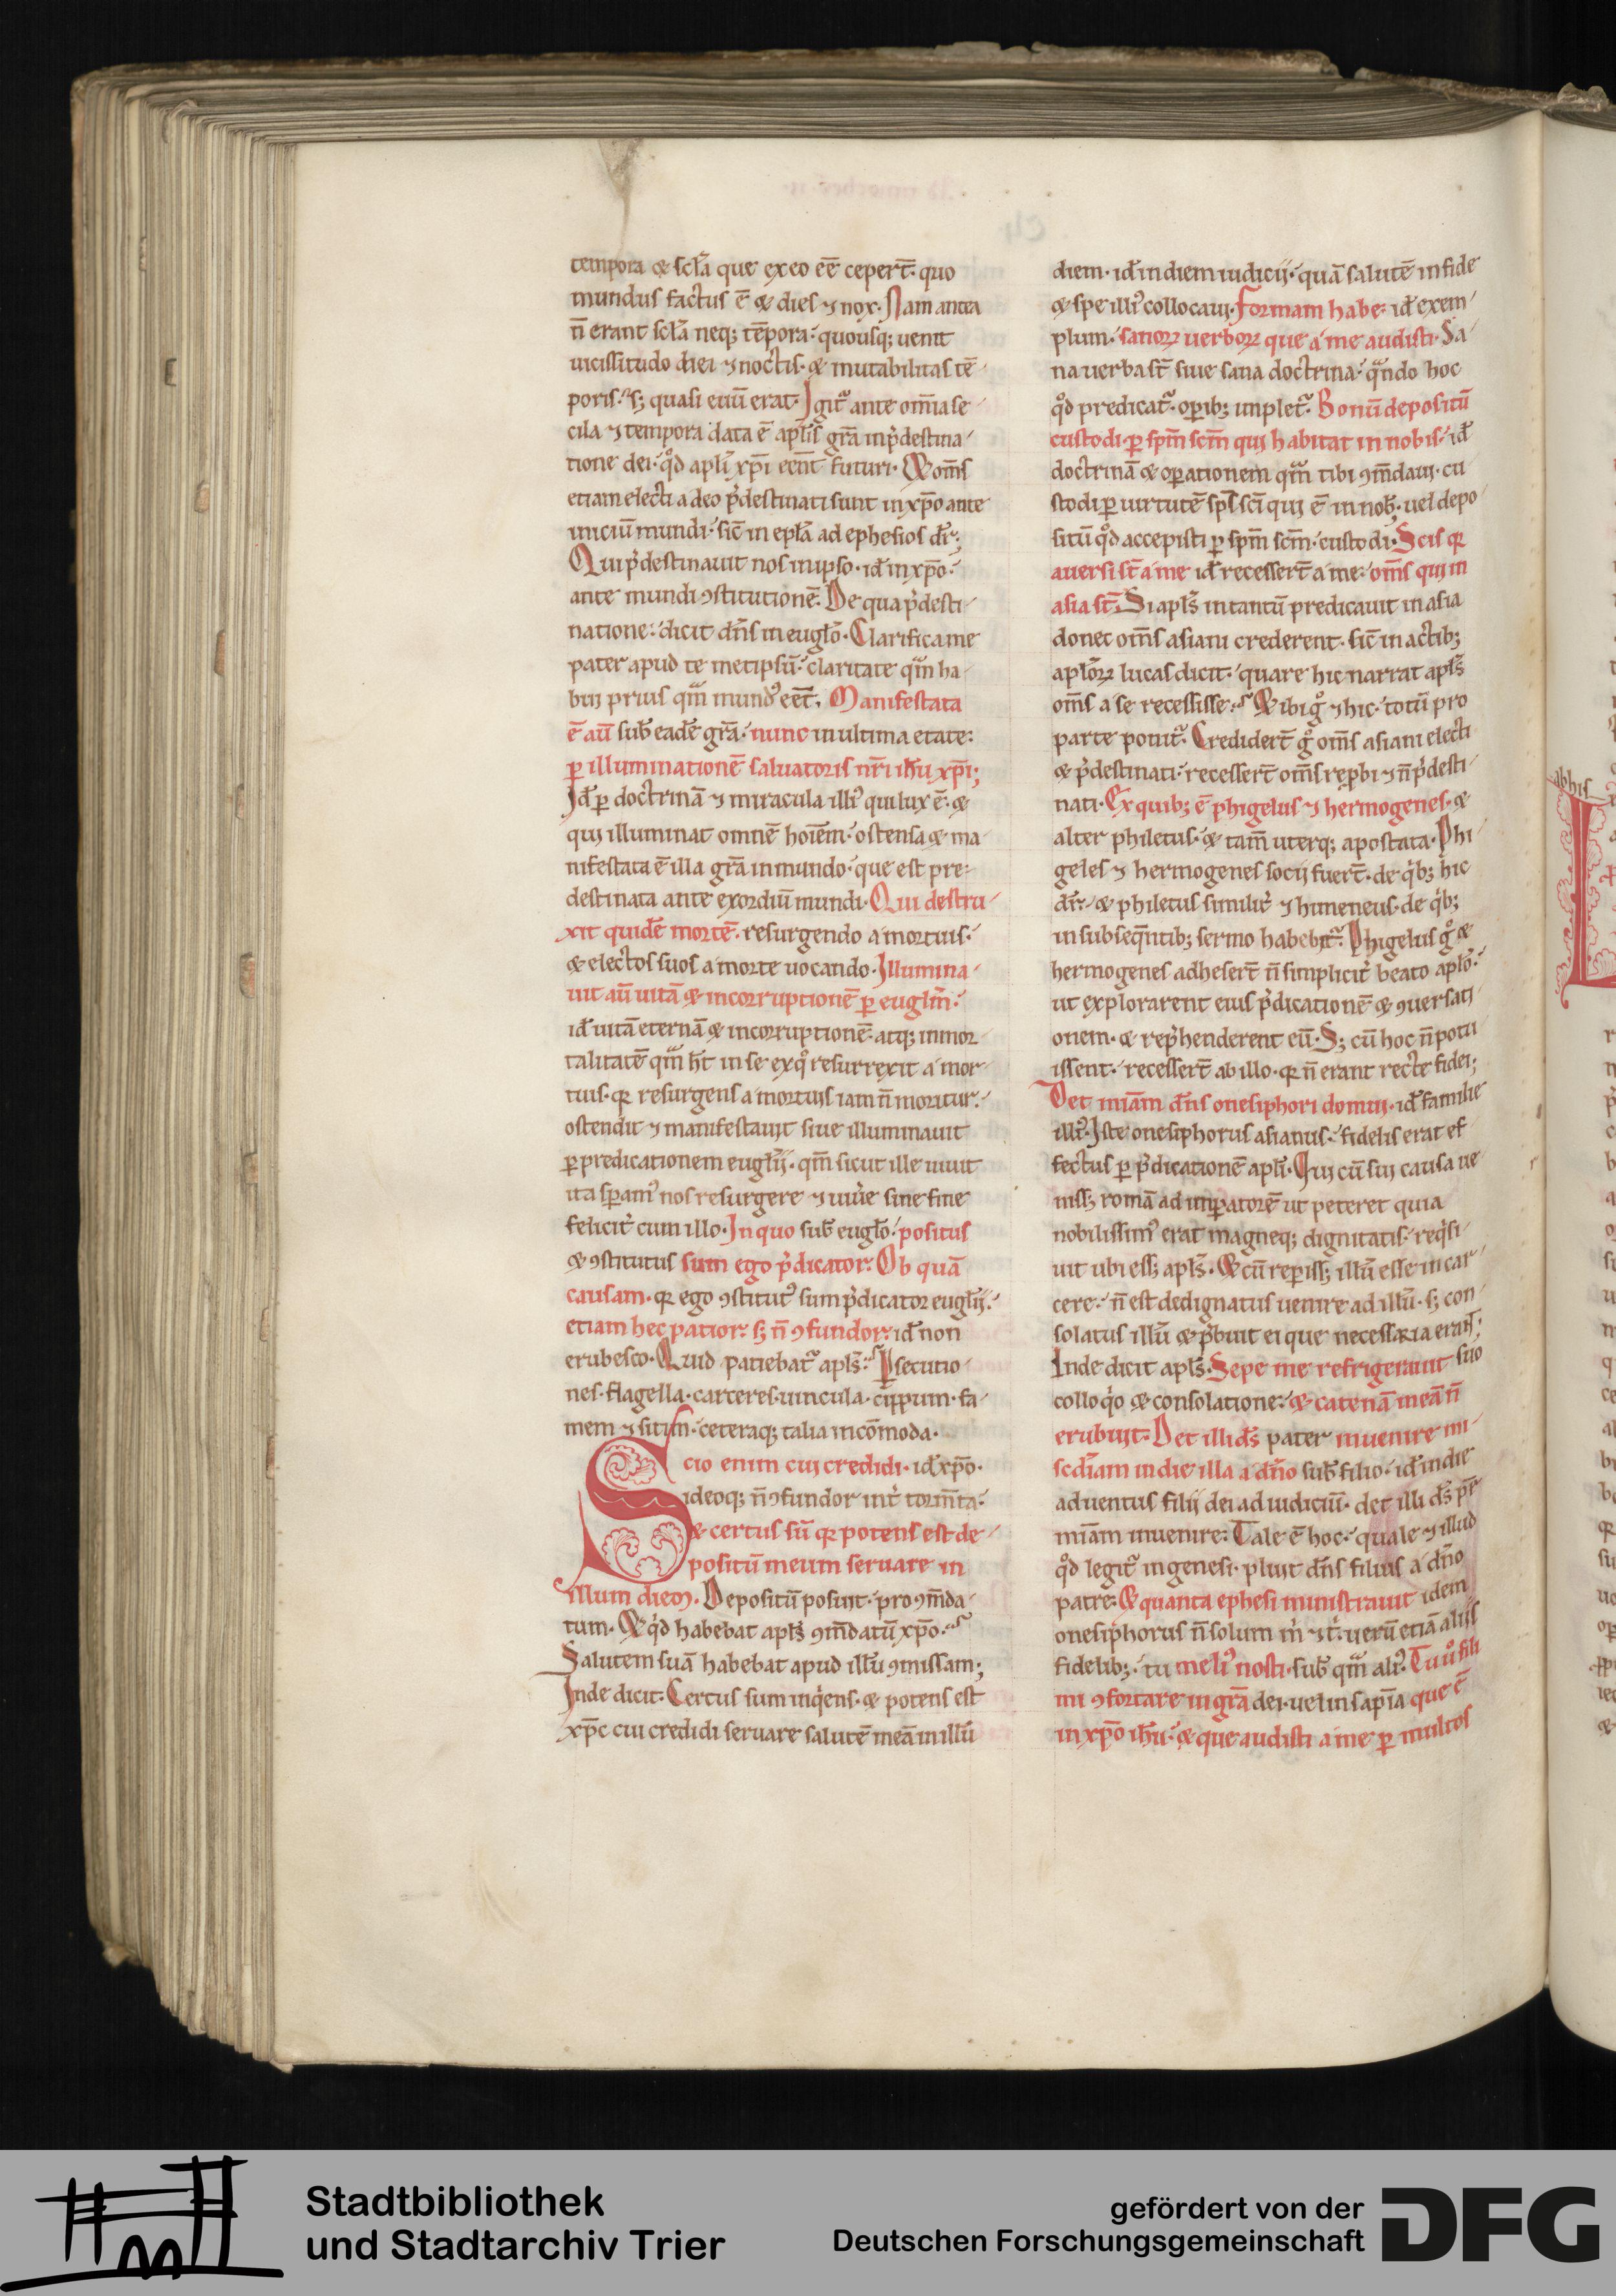 tempora & scła que ex eo eē ceperт̄· quo
mundus factus ē & dies ⁊ nox· Nam antea
n̄ erant scła neq; tēpora· quousq; uenit
uicissitudo diei ⁊ noctis· & mutabilitas tē-
poris· s; quasi euū erat· Igit᷑ ante om̄ia se-
cila ⁊ tempora data ē apłis gr̄a in p̄destina-
tione dei· qđ apłi xp̄i eēnt futuri· & om̄s
etiam electi a deo p̄destinati sunt in xp̄o ante
iniciū mundi· sic̄ in epła ad ephesios dr̄·;
Qui p̄destinauit nos in ipso· id̄ in xp̄o·
ante mundi ꝯstitutionē· De qua p̄desti-
natione· dicit dn̄s in eugło· Clarifica me
pater apud te metipsū· claritate qm̄ ha-
bui prius qm̄ mundꝰ eēt· Manifestata
ē aū sub eadē gr̄a· nunc in ultima etate·
ꝑ illuminationē saluatoris nr̄i ih̄u xp̄i;
Id̄ ꝑ doctrinā ⁊ miracula illiꝰ qui lux ē· &
qui illuminat omnē hoiēm· ostensa & ma-
nifestata ē illa gr̄a in mundo· que est pre-
destinata ante exordiū mundi· Qui destru-
xit quidē mortē· resurgendo a mortuis·
& electos suos a morte uocando· Illumina-
uit aū uitā & incorruptionē ꝑ euglm̄·
id̄ uitā eternā & incorruptionē· atq; inmor-
talitatē qm̄ ht̄ in se ex qo resurrexit a mor-
tuis· qꝛ resurgens a mortuis iam n̄ moritur·
ostendit ⁊ manifestauit siue illuminauit
ꝑ predicationem eugłii· qm̄ sicut ille uiuit
ita sꝑamꝰ nos resurgere ⁊ uiue͛ sine fine
felicit͛ cum illo· In quo sub eugło· positus
& ꝯstitutus sum ego p̄dicator· Ob quā
causam· qꝛ ego ꝯstitutꝰ sum p̄dicator eugłii·
etiam hec patior· s; n̄ ꝯfundor· id̄ non
erubesco· Quid patiebat᷑ apłs· Ꝑsecutio-
nes· flagella· carceres· uincula· cippum· fa-
mem ⁊ sitim· ceteraq; talia incōmoda·
Scio enim cui credidi· id̄ xp̄o·
ideoq; n̄ ꝯfundor int͛ torm̄ta·
& certus sū qꝛ potens est de-
positū meum seruare in
illum diem· Depositū posuit· pro ꝯm̄da-
tum· & qid habebat apłs ꝯm̄datū xp̄o·
Salutem suā habebat apud illū ꝯmissam;
Inde dicit· Certus sum inqiens· & potens est
xp̄c cui credidi seruare salutē meā in illū
diem· id̄ in diem iudicii· quā salutē in fide
& spe illiꝰ collocaui· Formam habe· id̄ exem-
plum· sanoꝝ uerboꝝ que a me audisti· Sa-
na uerba st̄ siue sana doctrina· qando hoc
qđ predicat᷑· oꝑib; implet᷑· Bonū depositū
custodi· ꝑ sp̄m sc̄m qui habitat in nobis· id̄
doctrinā & oꝑationem qm̄ tibi ꝯm̄daui· cu-
stodi ꝑ uirtutē sp̄s sc̄i qui ē in nob̄· uel depo-
sitū qđ accepisti ꝑ sp̄m sc̄m· custodi· Scis qꝛ
auersi st̄ a me id̄ recesserт̄ a me· om̄s qui in
asia st̄· Si apłs in tantū predicauit in asia
donec om̄s asiani crederent· sic̄ in actib;
apłoꝝ lucas dicit· quare hic narrat apłs
om̄s a se recessisse· & ibi gͦ ⁊ hic· totū pro
parte ponit᷑· Crediderт̄ gͦ om̄s asiani electi
& p̄destinati· recesserт̄ om̄s rep̄bi ⁊ n̄ p̄desti-
nati· Ex quib; ē phigelus ⁊ hermogenes· &
alter philetus· & tam̄ uterq; apostata· Phi-
geles ⁊ hermogenes socii fuerт̄· de qib; hic
dr̄· & philetus similit͛ ⁊ himeneus· de qib;
in subseqn̄tib; sermo habebit᷑· Phigelus gͦ &
hermogenes adheserт̄ n̄ simplicit͛ beato apło·
ut explorarent eius p̄dicationē & ꝯuersati-
onem· & rep̄henderent eū· S; cū hoc n̄ potu-
issent· recesserт̄ ab illo· qꝛ n̄ erant recte fidei;
Det miām dn̄s onesiphori domui· id̄ familie
illiꝰ· Iste onesiphorus asianus· fidelis erat ef-
fectus ꝑ p̄dicationē apłi· Qui cū sui causa ue-
niss; romā ad imꝑatorē ut peteret quia
nobilissimꝰ erat magneq; dignitatis· reqisi-
uit ubi ess; apłs· & cū reꝑiss; illū esse in car-
cere· n̄ est dedignatus uenire ad illū· s; con-
solatus illū & p̄buit ei que necessaria erant;
Inde dicit apłs· Sepe me refrigerauit suo
colloqio & consolatione· & catenā meā n̄
erubuit· Det illi ds̄ pater inuenire mi-
sc̄diam in die illa a dn̄o sub filio· id̄ in die
aduentus filii dei ad iudiciū· det illi ds̄ pr̄
miām inuenire· Tale ē hoc· quale ⁊ illud
qđ legit᷑ in genesi· pluit dn̄s filius a dn̄o
patre· & quanta ephesi ministrauit idem
onesiphorus n̄ solum m͛ ⁊ t͛· uerū etiā aliis
fidelib;· tu meliꝰ nosti· sub qm̄ aliꝰ· Tu uͦ fili
mi ꝯfortare in gr̄a dei· uel in sapiā que ē
in xp̄o ih̄u· & que audisti a me ꝑ multos
abhis
Stadtbibliothek
und Stadtarchiv Trier
gefördert von der
Deutschen Forschungsgemeinschaft
DFG